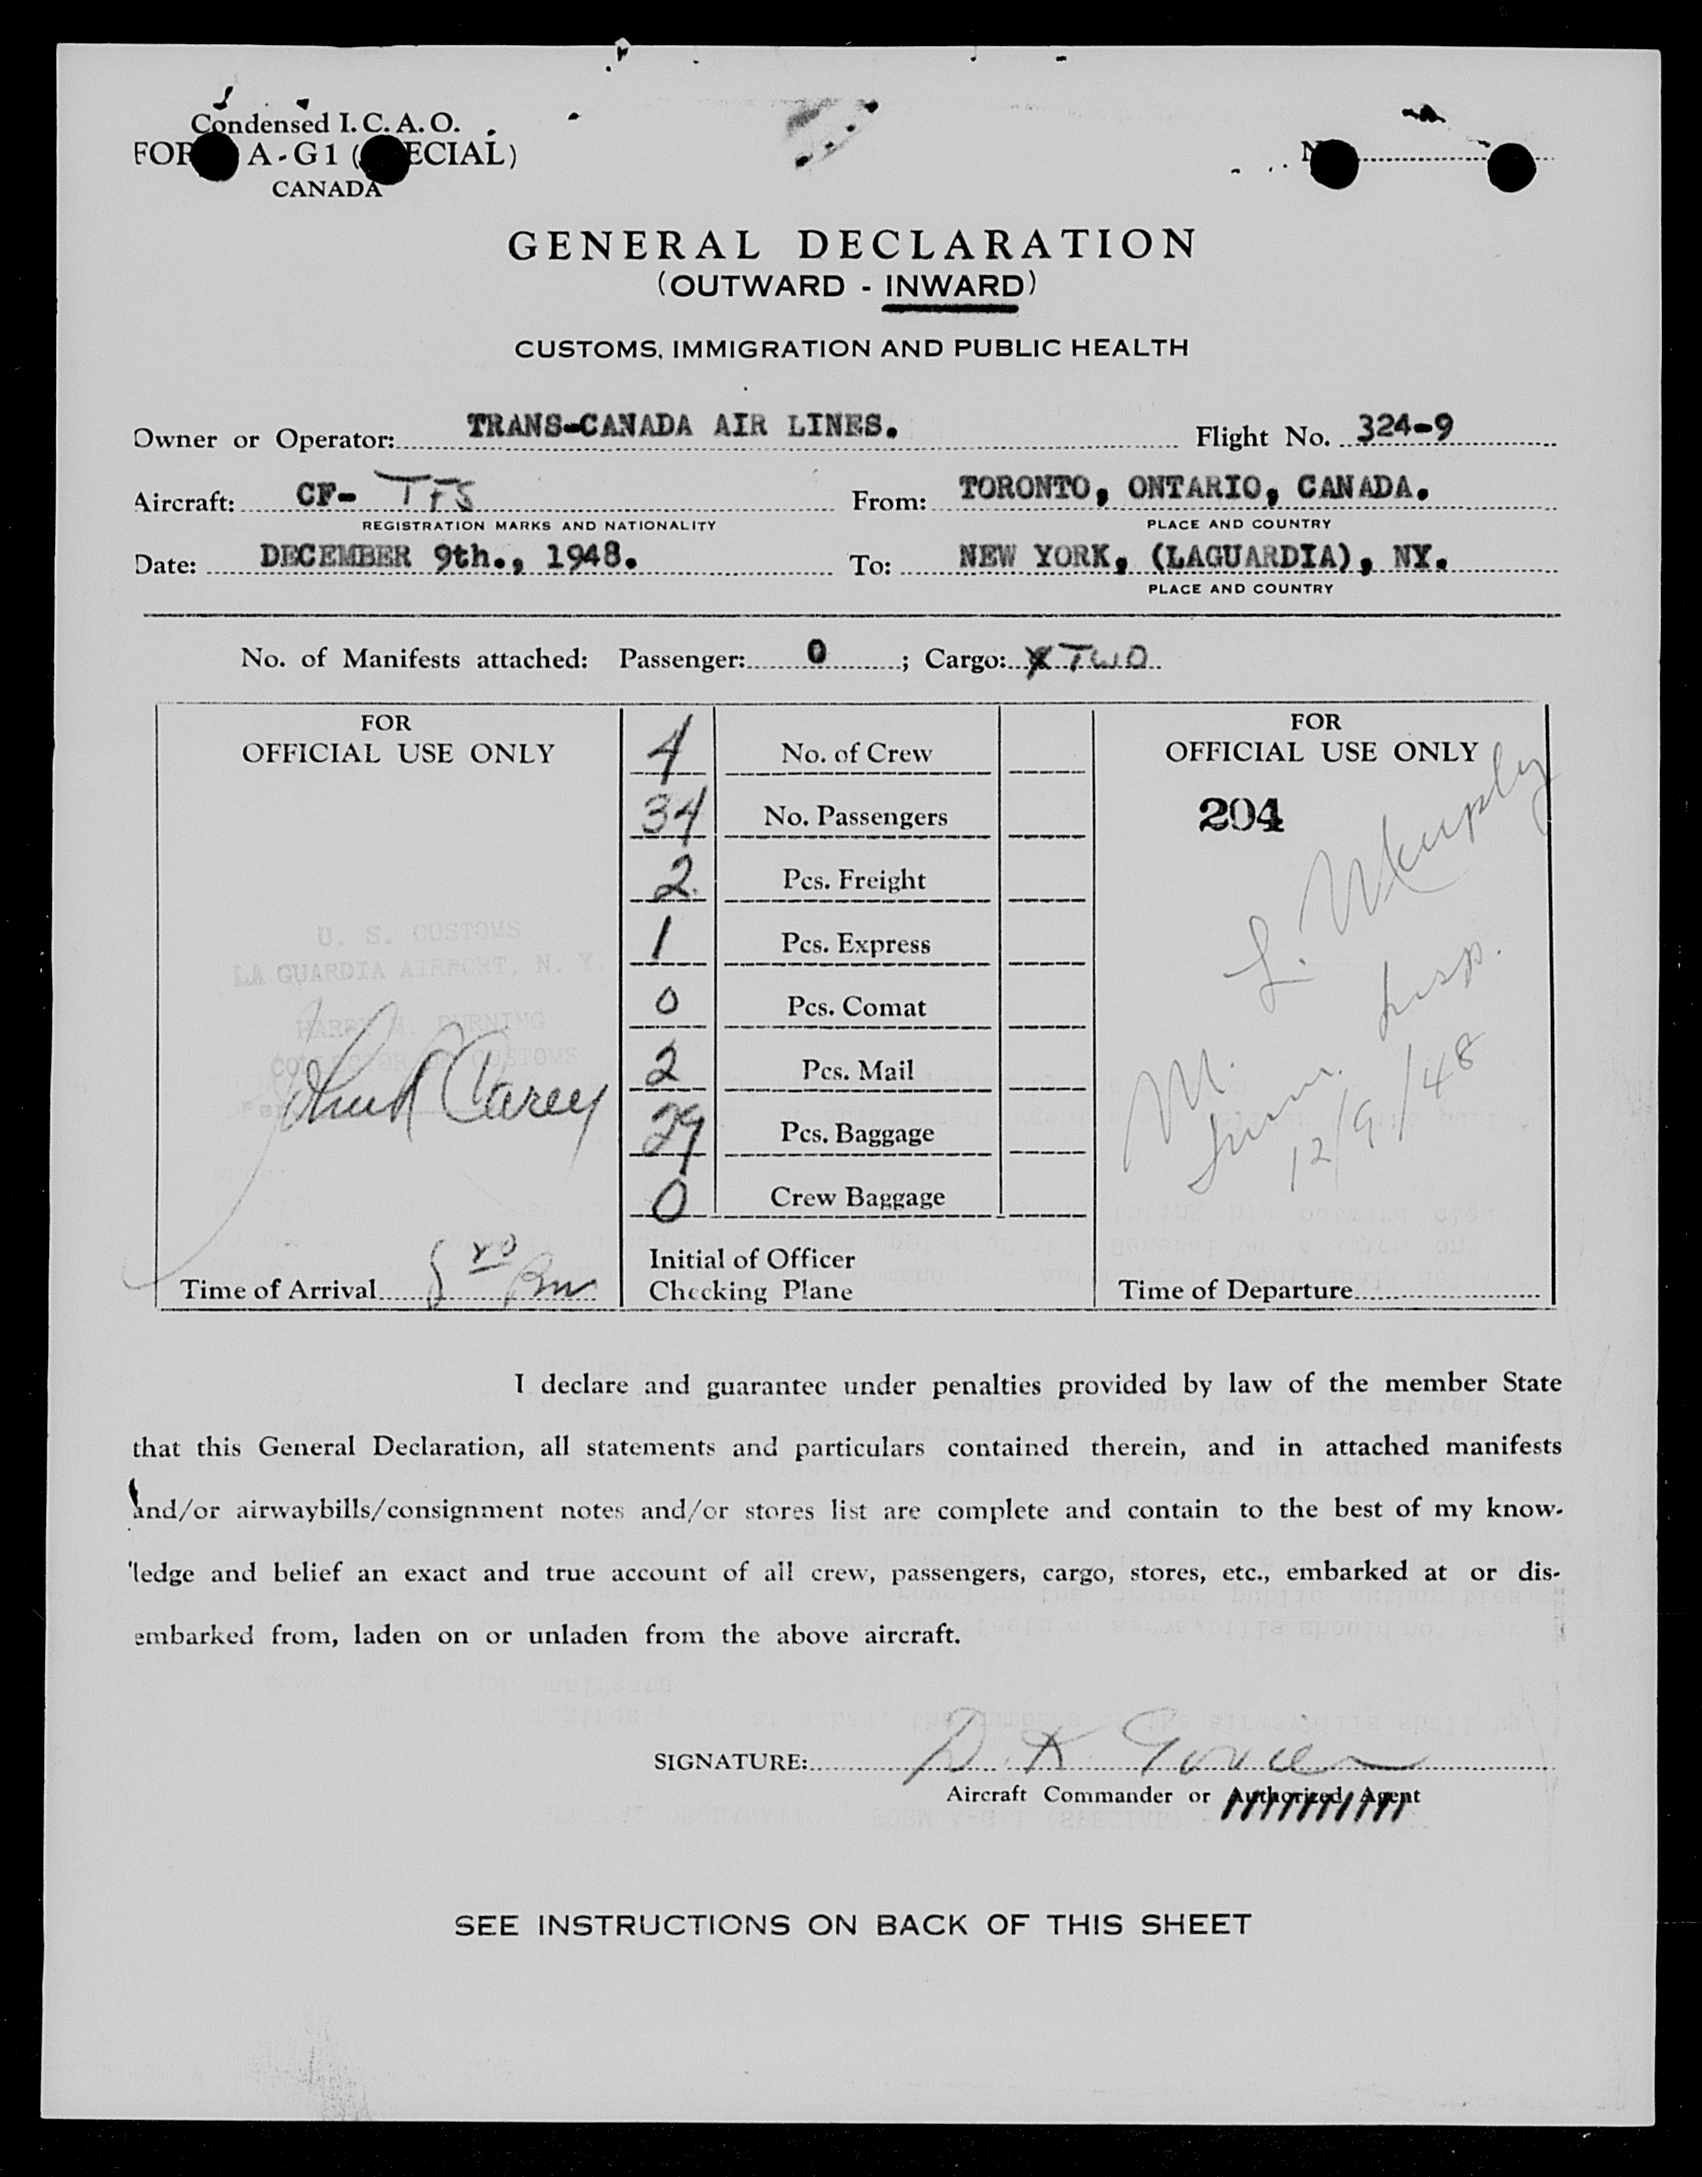 Condensed I. C. A. O.
A - G 1 (
CANADA
GENERAL DECLARATION
(OUTWARD - INWARD)
CUSTOMS, IMMIGRATION AND PUBLIC HEALTH
Owner or Operator: TRANS-CANADA AIR LINES. Flight No. 324-9
Aircraft: CF- TFS From: TORONTO, ONTARIO, CANADA.
REGISTRATION MARKS AND NATIONALITY PLACE AND COUNTRY
Date: DECEMBER 9th., 1948. To: NEW YORK, (LAGUARDIA), NY.
PLACE AND COUNTRY
No. of Manifests attached: Passenger: 0 ; Cargo: TWO
FOR
OFFICIAL USE ONLY
U. S. CUSTOMS
LA GUARDIA AIRPORT, N. Y.
HARRY M. DURNING
COLLECTOR OF CUSTOMS
Carey
Time of Arrival
4 No. of Crew
34 No. Passengers
2 Pcs. Freight
1 Pcs. Express
0 Pcs. Comat
2 Pcs. Mail
29 Pcs. Baggage
0 Crew Baggage
Initial of Officer
Checking Plane
FOR
OFFICIAL USE ONLY
204
L. Murphy
Imm. Insp.
12/9/48
Time of Departure
I declare and guarantee under penalties provided by law of the member State
that this General Declaration, all statements and particulars contained therein, and in attached manifests
and/or airwaybills/consignment notes and/or stores list are complete and contain to the best of my know-
ledge and belief an exact and true account of all crew, passengers, cargo, stores, etc., embarked at or dis-
embarked from, laden on or unladen from the above aircraft.
SIGNATURE: D. K.
Aircraft Commander or Authorized Agent
SEE INSTRUCTIONS ON BACK OF THIS SHEET